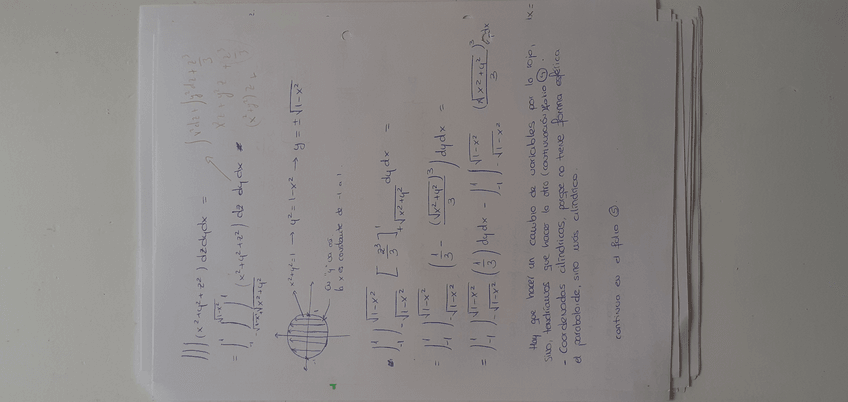 ∭(x²+y²+z²) dzdydx =
= ∫₋₁¹ ∫_{-√1-x²}^{√1-x²} ∫_{√x²+y²}^{1} (x²+y²+z²) dz dydx
x²+y²=1 → y²=1-x² → y=±√1-x²
x es constante de -1 a 1.
∫₋₁¹ ∫_{-√1-x²}^{√1-x²} [z³/3]_{+√x²+y²}^{1} dydx =
= ∫₋₁¹ ∫_{-√1-x²}^{√1-x²} (1/3 - (√x²+y²)³/3) dydx =
= ∫₋₁¹ ∫_{-√1-x²}^{√1-x²} (1/3) dydx - ∫₋₁¹ ∫_{-√1-x²}^{√1-x²} (√x²+y²)³/3 dydx
Hay que hacer un cambio de variables por lo rojo,
sino, tendríamos que hacer lo dlo (continuación folio 4).
- Coordenadas cilíndricas, porque no tiene forma esférica
el paraboloide, sino más cilíndrico.
continua en el folio 5